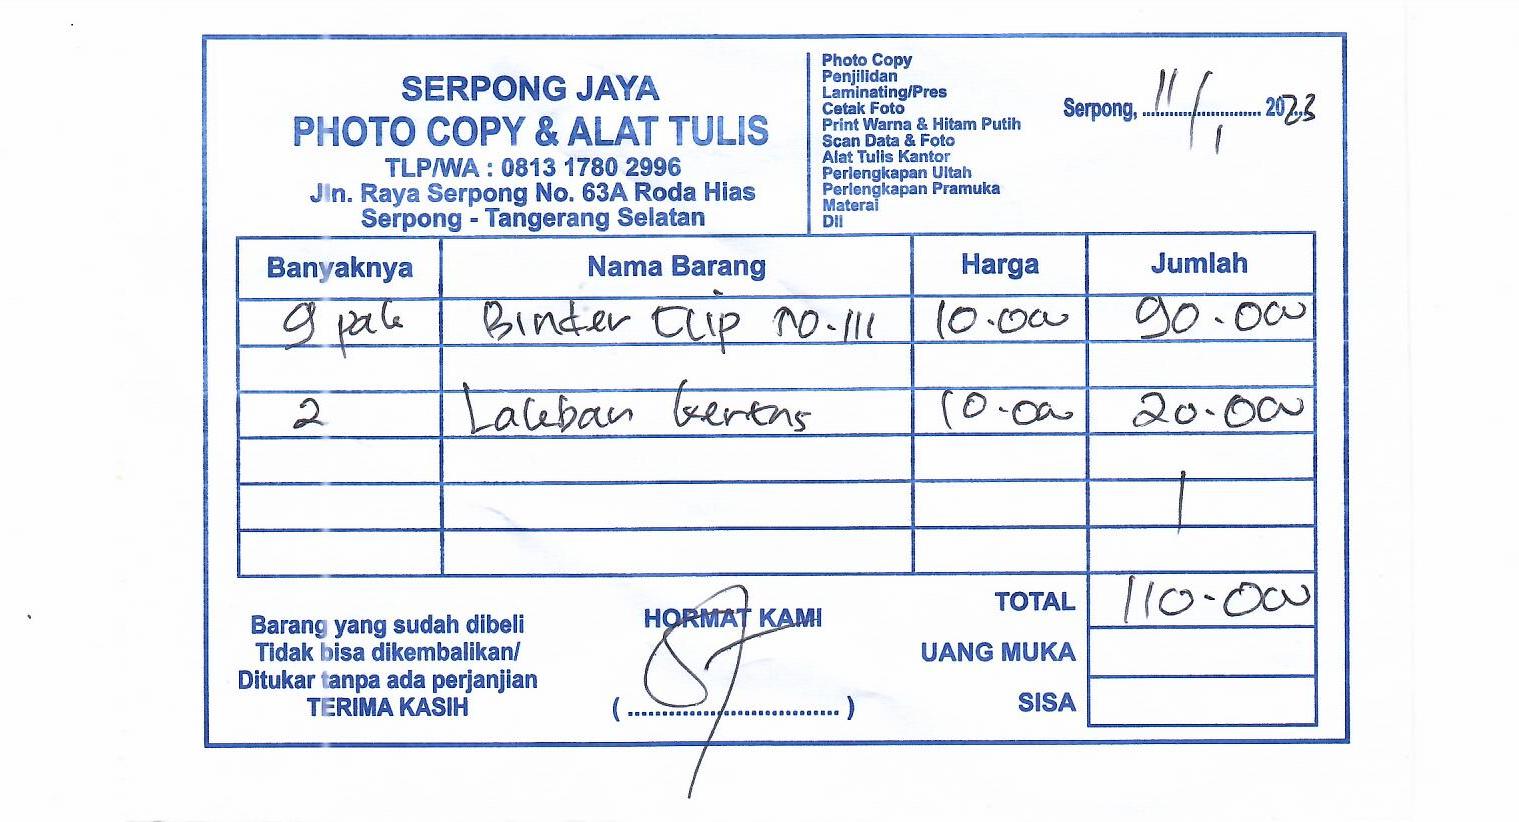 SERPONG JAYA
PHOTO COPY & ALAT TULIS
TLP/WA : 0813 1780 2996
Jln. Raya Serpong No. 63A Roda Hias
Serpong - Tangerang Selatan
Photo Copy
Penjilidan
Laminating/Pres
Cetak Foto
Print Warna & Hitam Putih
Scan Data & Foto
Alat Tulis Kantor
Perlengkapan Ultah
Perlengkapan Pramuka
Materai
Dll
Serpong, 11/1 2023
Banyaknya Nama Barang Harga Jumlah
9 pak Binder Clip no. 111 10.000 90.000
2 Lakban kertas 10.000 20.000
TOTAL 110.000
UANG MUKA
SISA
Barang yang sudah dibeli
Tidak bisa dikembalikan/
Ditukar tanpa ada perjanjian
TERIMA KASIH
HORMAT KAMI
(..............................)